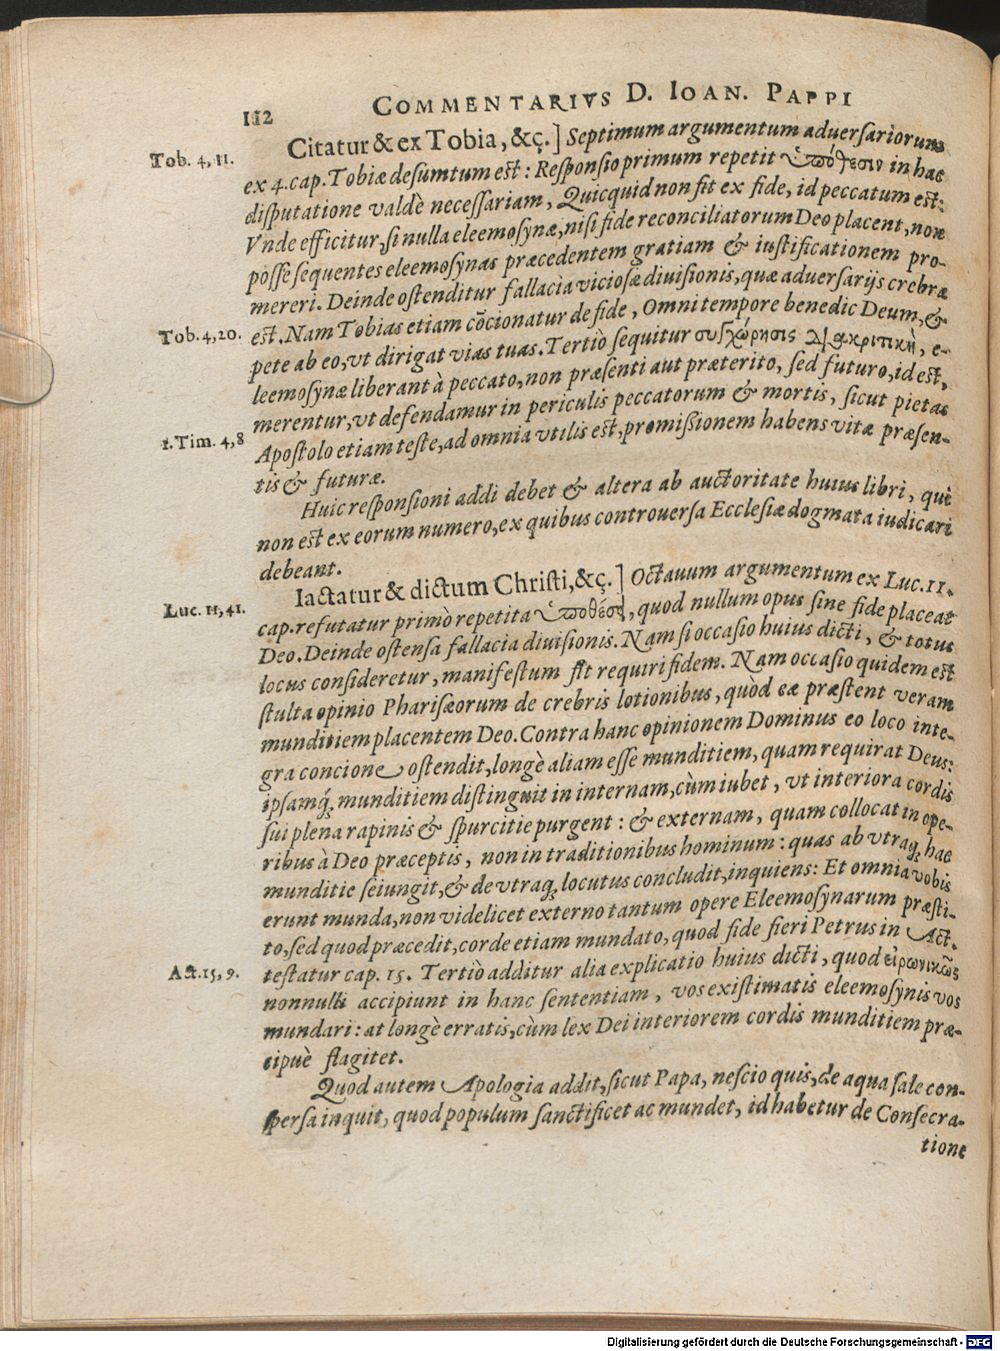 112 COMMENTARIVS D. IOAN. PAPPI
Tob. 4, 11.
Citatur & ex Tobia, &ç.] Septimum argumentum aduersariorum
ex 4. cap. Tobiæ desumtum est: Responsio primum repetit ὑπόθεσιν in hac
disputatione valdè necessariam, Quicquid non fit ex fide, id peccatum est:
Vnde efficitur, si nulla eleemosynæ, nisi fide reconciliatorum Deo placent, non
posse sequentes eleemosynas præcedentem gratiam & iustificationem pro-
mereri. Deinde ostenditur fallacia viciosæ diuisionis, quæ aduersarijs crebræ
Tob. 4, 20.
est. Nam Tobias etiam cōcionatur de fide, Omni tempore benedic Deum, &
pete ab eo, vt dirigat vias tuas. Tertiò sequitur συγχώρησις διακριτικὴ, e-
leemosynæ liberant à peccato, non præsenti aut præterito, sed futuro, id est,
merentur, vt defendamur in periculis peccatorum & mortis, sicut pietas
1. Tim. 4, 8
Apostolo etiam teste, ad omnia vtilis est, promissionem habens vitæ præsen-
tis & futuræ.
Huic responsioni addi debet & altera ab auctoritate huius libri, què
non est ex eorum numero, ex quibus controuersa Ecclesiæ dogmata iudicari
debeant.
Iactatur & dictum Christi, &ç.] Octauum argumentum ex Luc. 11.
Luc. 11, 41.
cap. refutatur primò repetita ὑποθέσει, quod nullum opus sine fide placeat
Deo. Deinde ostensa fallacia diuisionis. Nam si occasio huius dicti, & totus
locus consideretur, manifestum fit requiri fidem. Nam occasio quidem est
stulta opinio Pharisæorum de crebris lotionibus, quòd eæ præstent veram
munditiem placentem Deo. Contra hanc opinionem Dominus eo loco inte-
gra concione ostendit, longè aliam esse munditiem, quam requirat Deus:
ipsamq́; munditiem distinguit in internam, cùm iubet, vt interiora cordis
sui plena rapinis & spurcitie purgent: & externam, quam collocat in ope-
ribus à Deo præceptis, non in traditionibus hominum: quas ab vtraq; hac
munditie seiungit, & de vtraq; locutus concludit, inquiens: Et omnia vobis
erunt munda, non videlicet externo tantum opere Eleemosynarum præsti-
to, sed quod præcedit, corde etiam mundato, quod fide fieri Petrus in Act.
Act. 15, 9.
testatur cap. 15. Tertiò additur alia explicatio huius dicti, quod εἰρωνικῶς
nonnulli accipiunt in hanc sententiam, vos existimatis eleemosynis vos
mundari: at longè erratis, cùm lex Dei interiorem cordis munditiem præ-
cipuè flagitet.
Quod autem Apologia addit, sicut Papa, nescio quis, de aqua sale con-
spersa inquit, quod populum sanctificet ac mundet, id habetur de Consecra-
tione
Digitalisierung gefördert durch die Deutsche Forschungsgemeinschaft - DFG